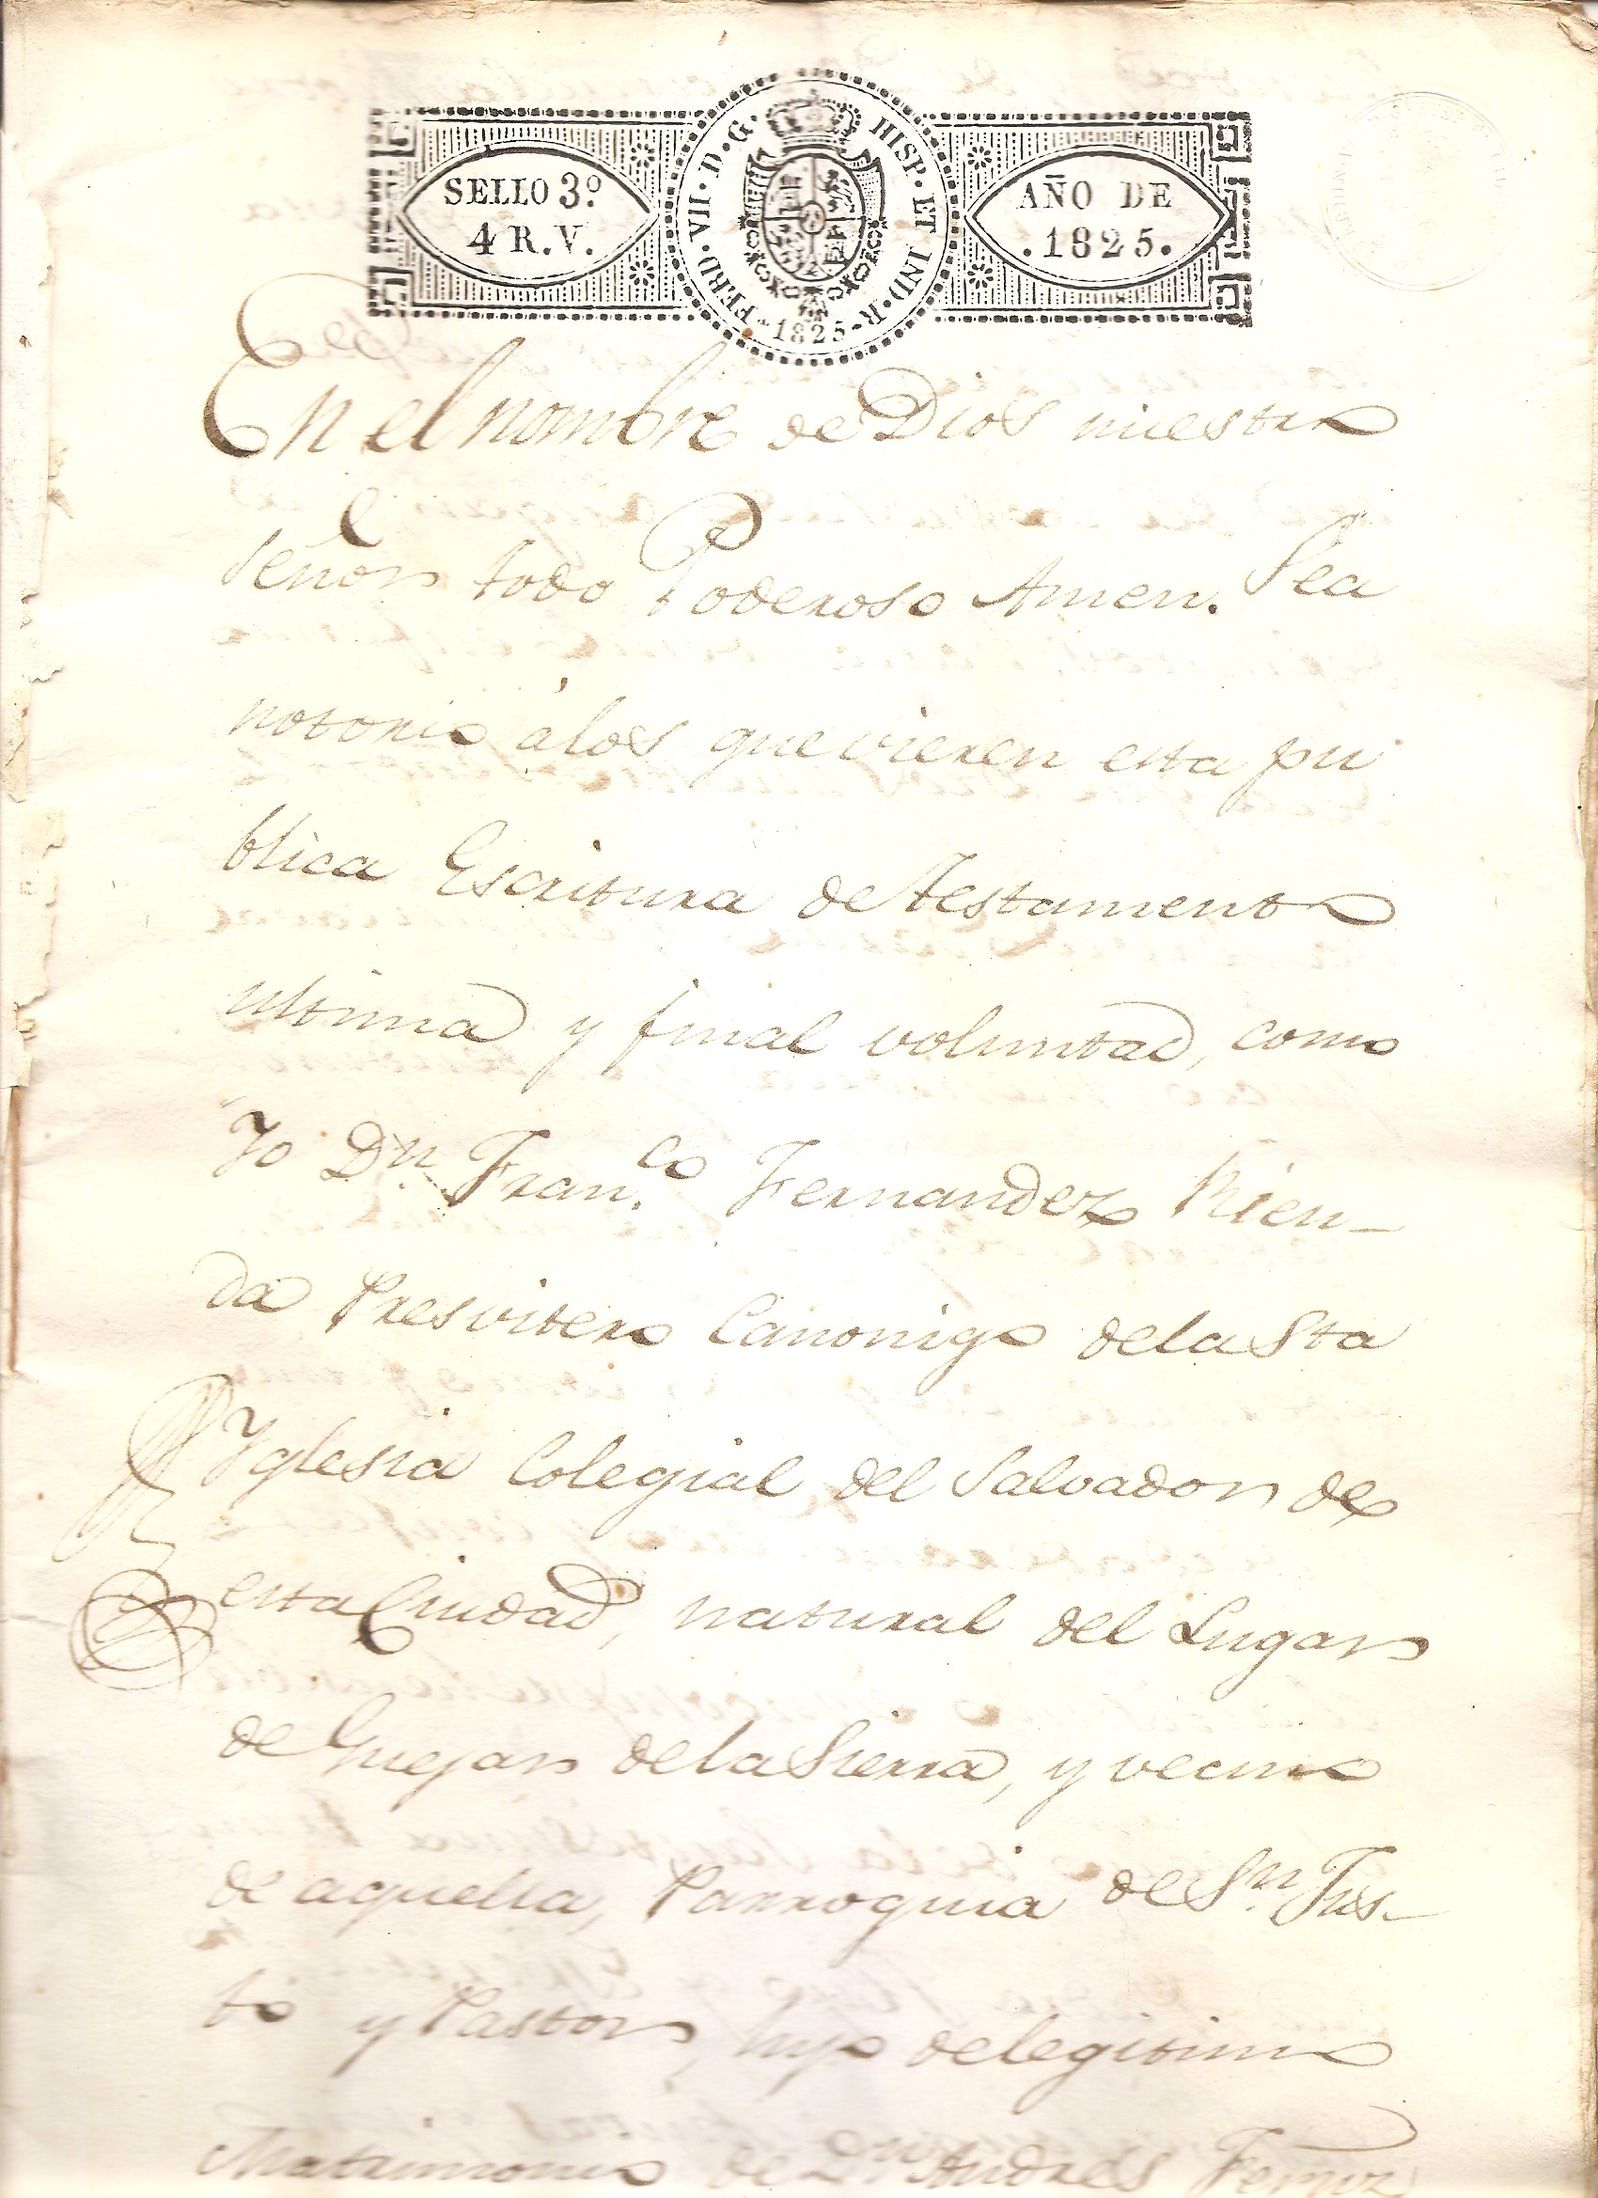 SELLO 3º
4 R.V.
FERD·VII·D·G· HISP·ET IND·R· 1825
AÑO DE
.1825.
En el nombre de Dios nuestro
Señor todo Poderoso Amen. Sea
notorio á los que vieren esta pu
blica Escritura de Testamento
ultima y final voluntad, como
Yo Dn. Fran.co Fernandez Rien-
da Presvitero Canonigo de la Sta
Yglesia Colegial del Salvador de
esta Ciudad, natural del Lugar
de Guejar de la Sierra, y vecino
de aquella, Parroquia de Sn. Jus-
to y Pastor, hijo de legitimo
Matrimonio de Dn Andres Fernz